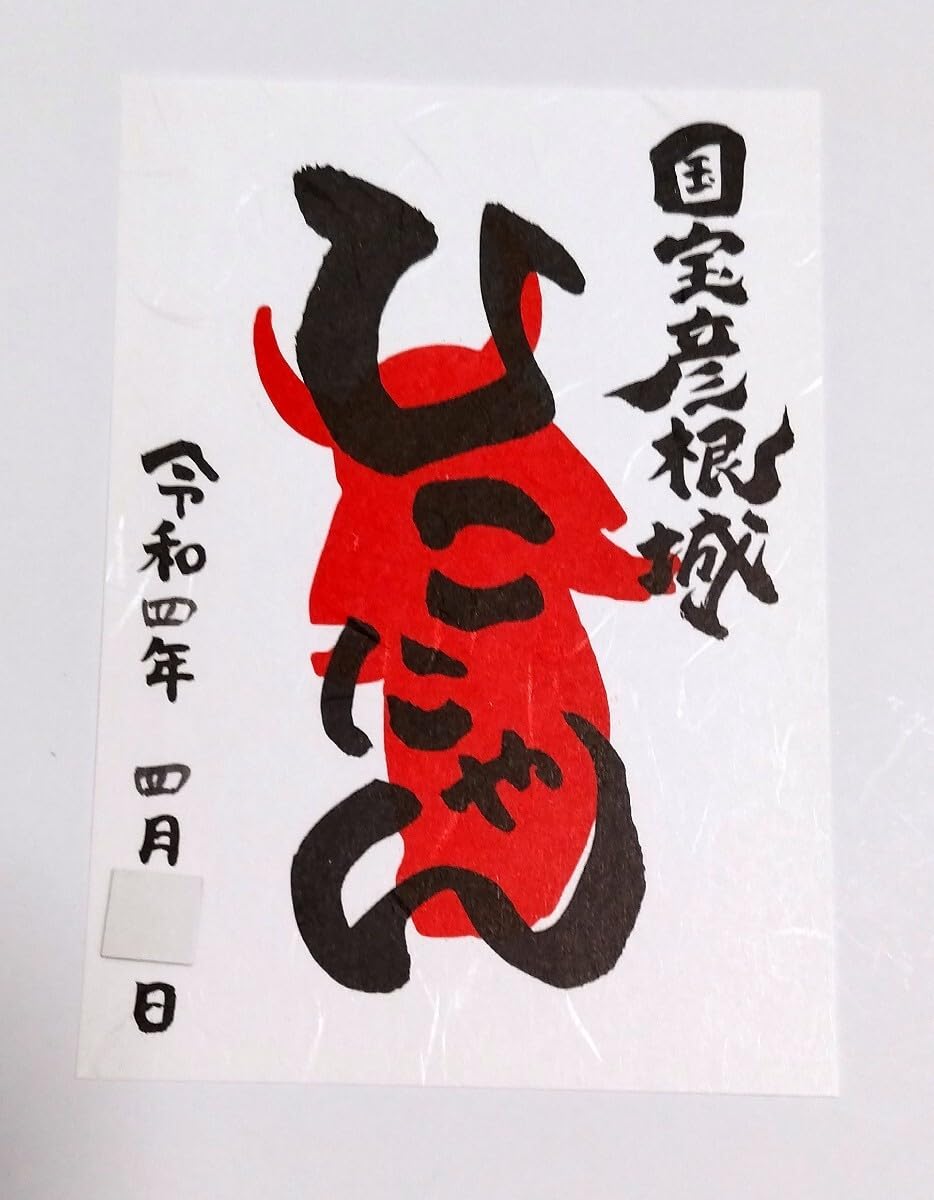 国宝彦根城
ひこにゃん
令和四年 四月 日